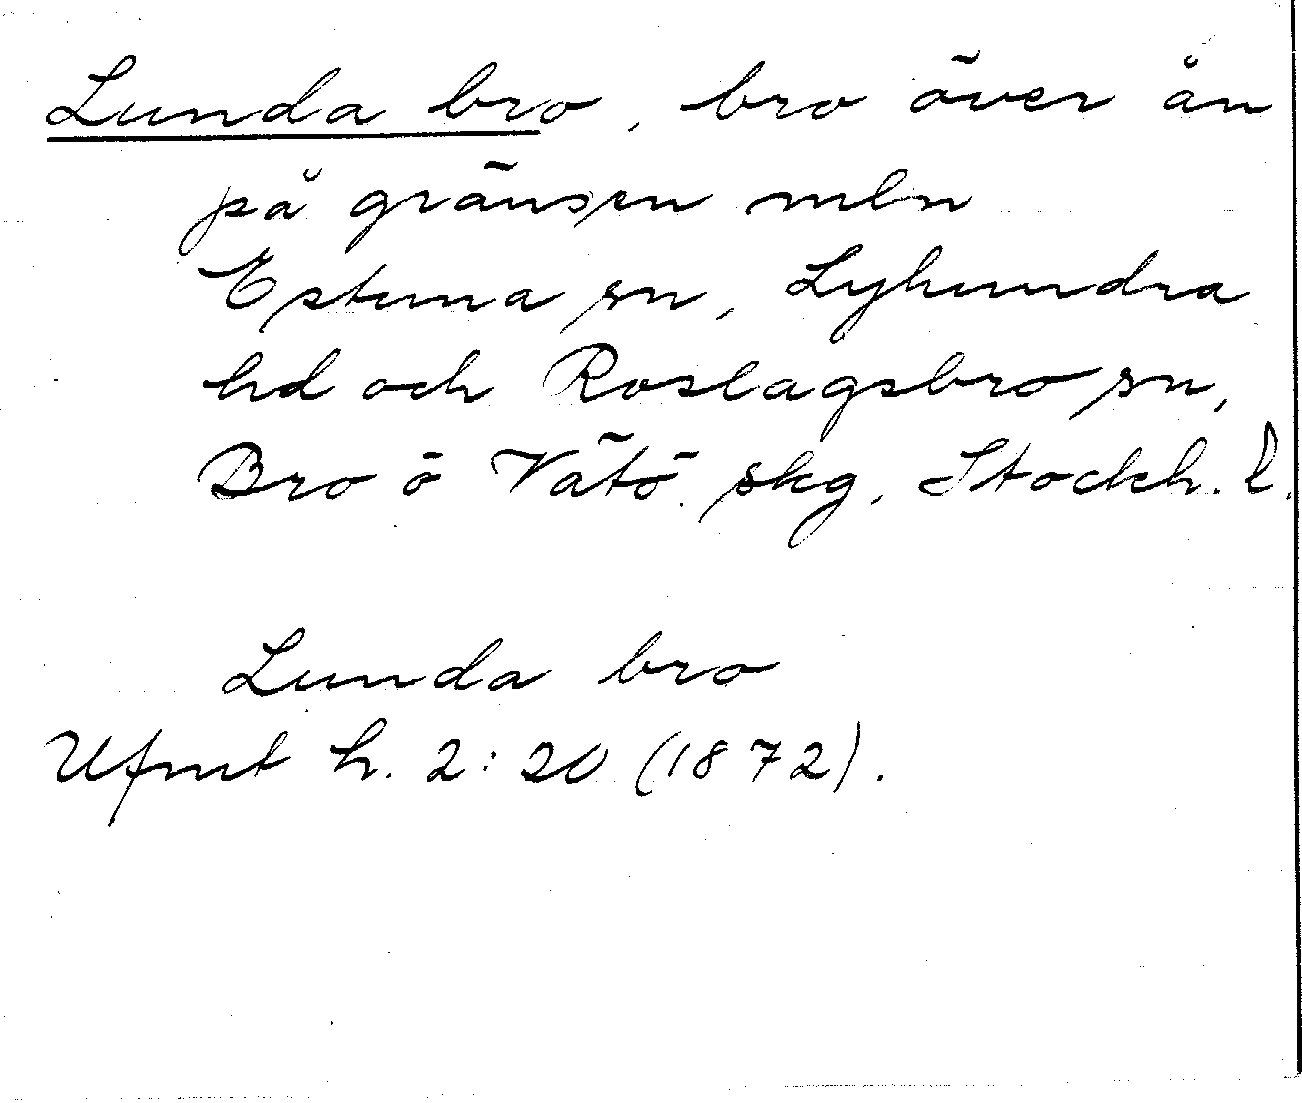 Lunda bro, bro över ån
på gränsen mln
Estuna sn, Lyhundra
hd och Roslagsbro sn,
Bro o Vätö skg. Stockh. l.
Lunda bro
Ufmt h. 2:20 (1872).